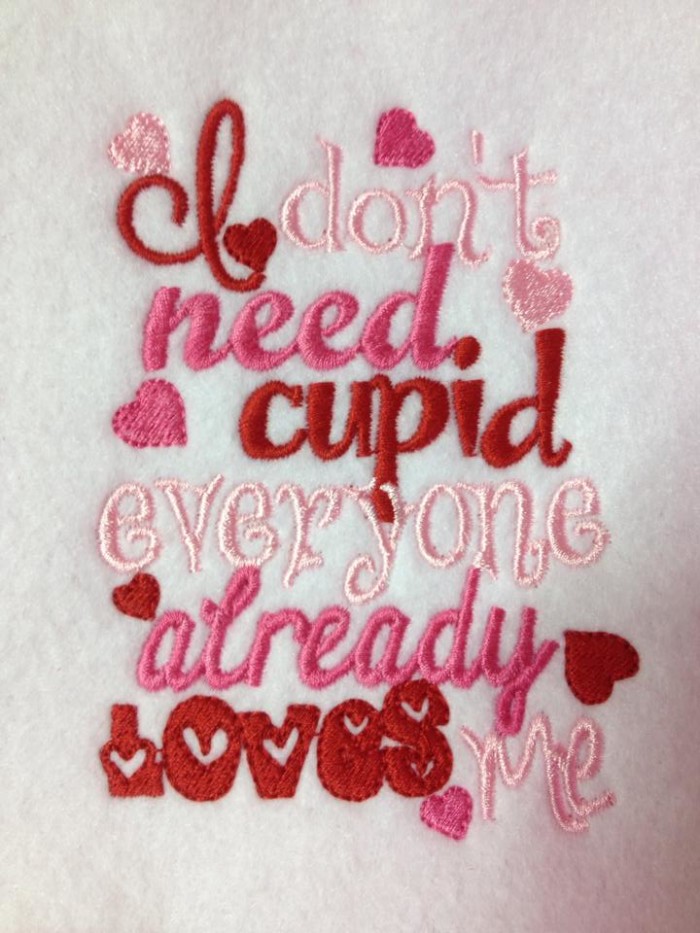 I don't
need
cupid
everyone
already
LOVES me